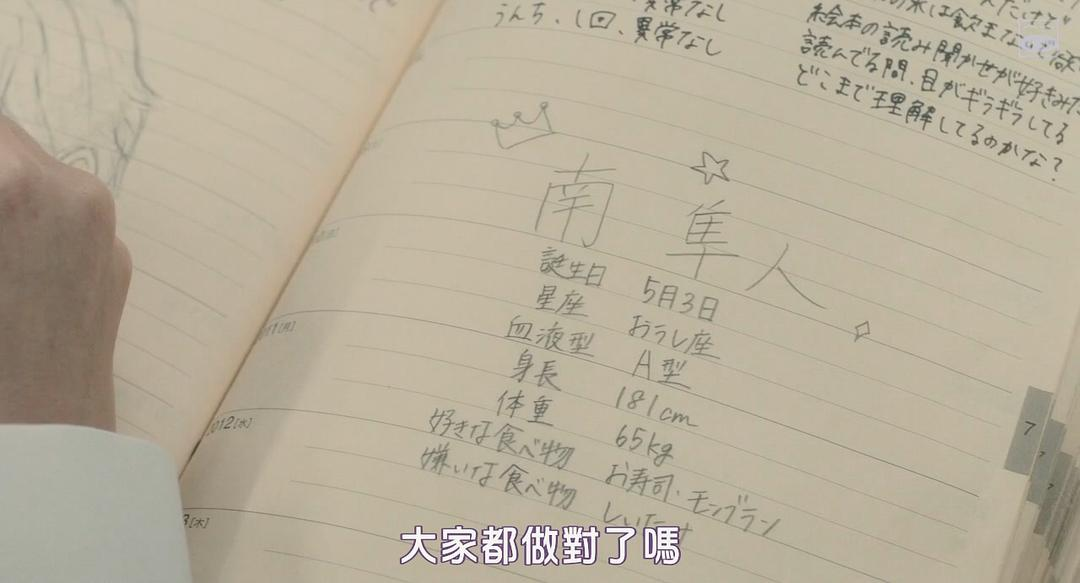 異常なし
うんち、1回、異常なし
絵本の読み聞かせが好きみた
読んでる間、目がギラギラしてる
どこまで理解してるのかな?
南 隼人
誕生日 5月3日
星座 おうし座
血液型 A型
身長 181cm
体重 65kg
好きな食べ物 お寿司・モンブラン
嫌いな食べ物 しいたけ
11[月]
12[水]
[木]
7
大家都做對了嗎